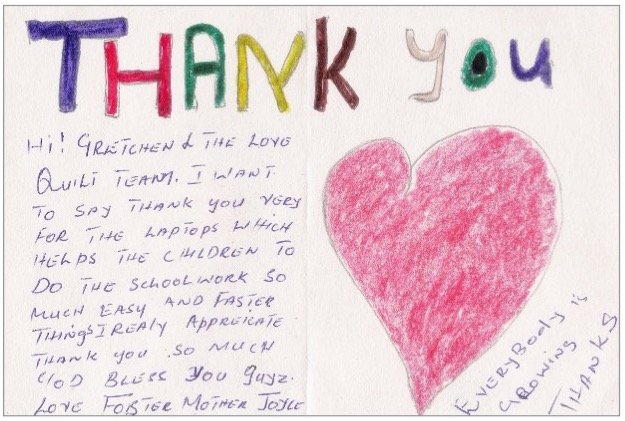 THANK YOU
Hi! GRETCHEN & THE LOVE
QUILT TEAM. I WANT
TO SAY THANK YOU VERY
FOR THE LAPTOPS WHICH
HELPS THE CHILDREN TO
DO THE SCHOOLWORK SO
MUCH EASY AND FASTER
THINGS I REALY APPREICATE
THANK YOU SO MUCH
GOD BLESS YOU GUYZ.
LOVE FOSTER MOTHER JOYCE
EVERYBODY is
GROWING
THANKS